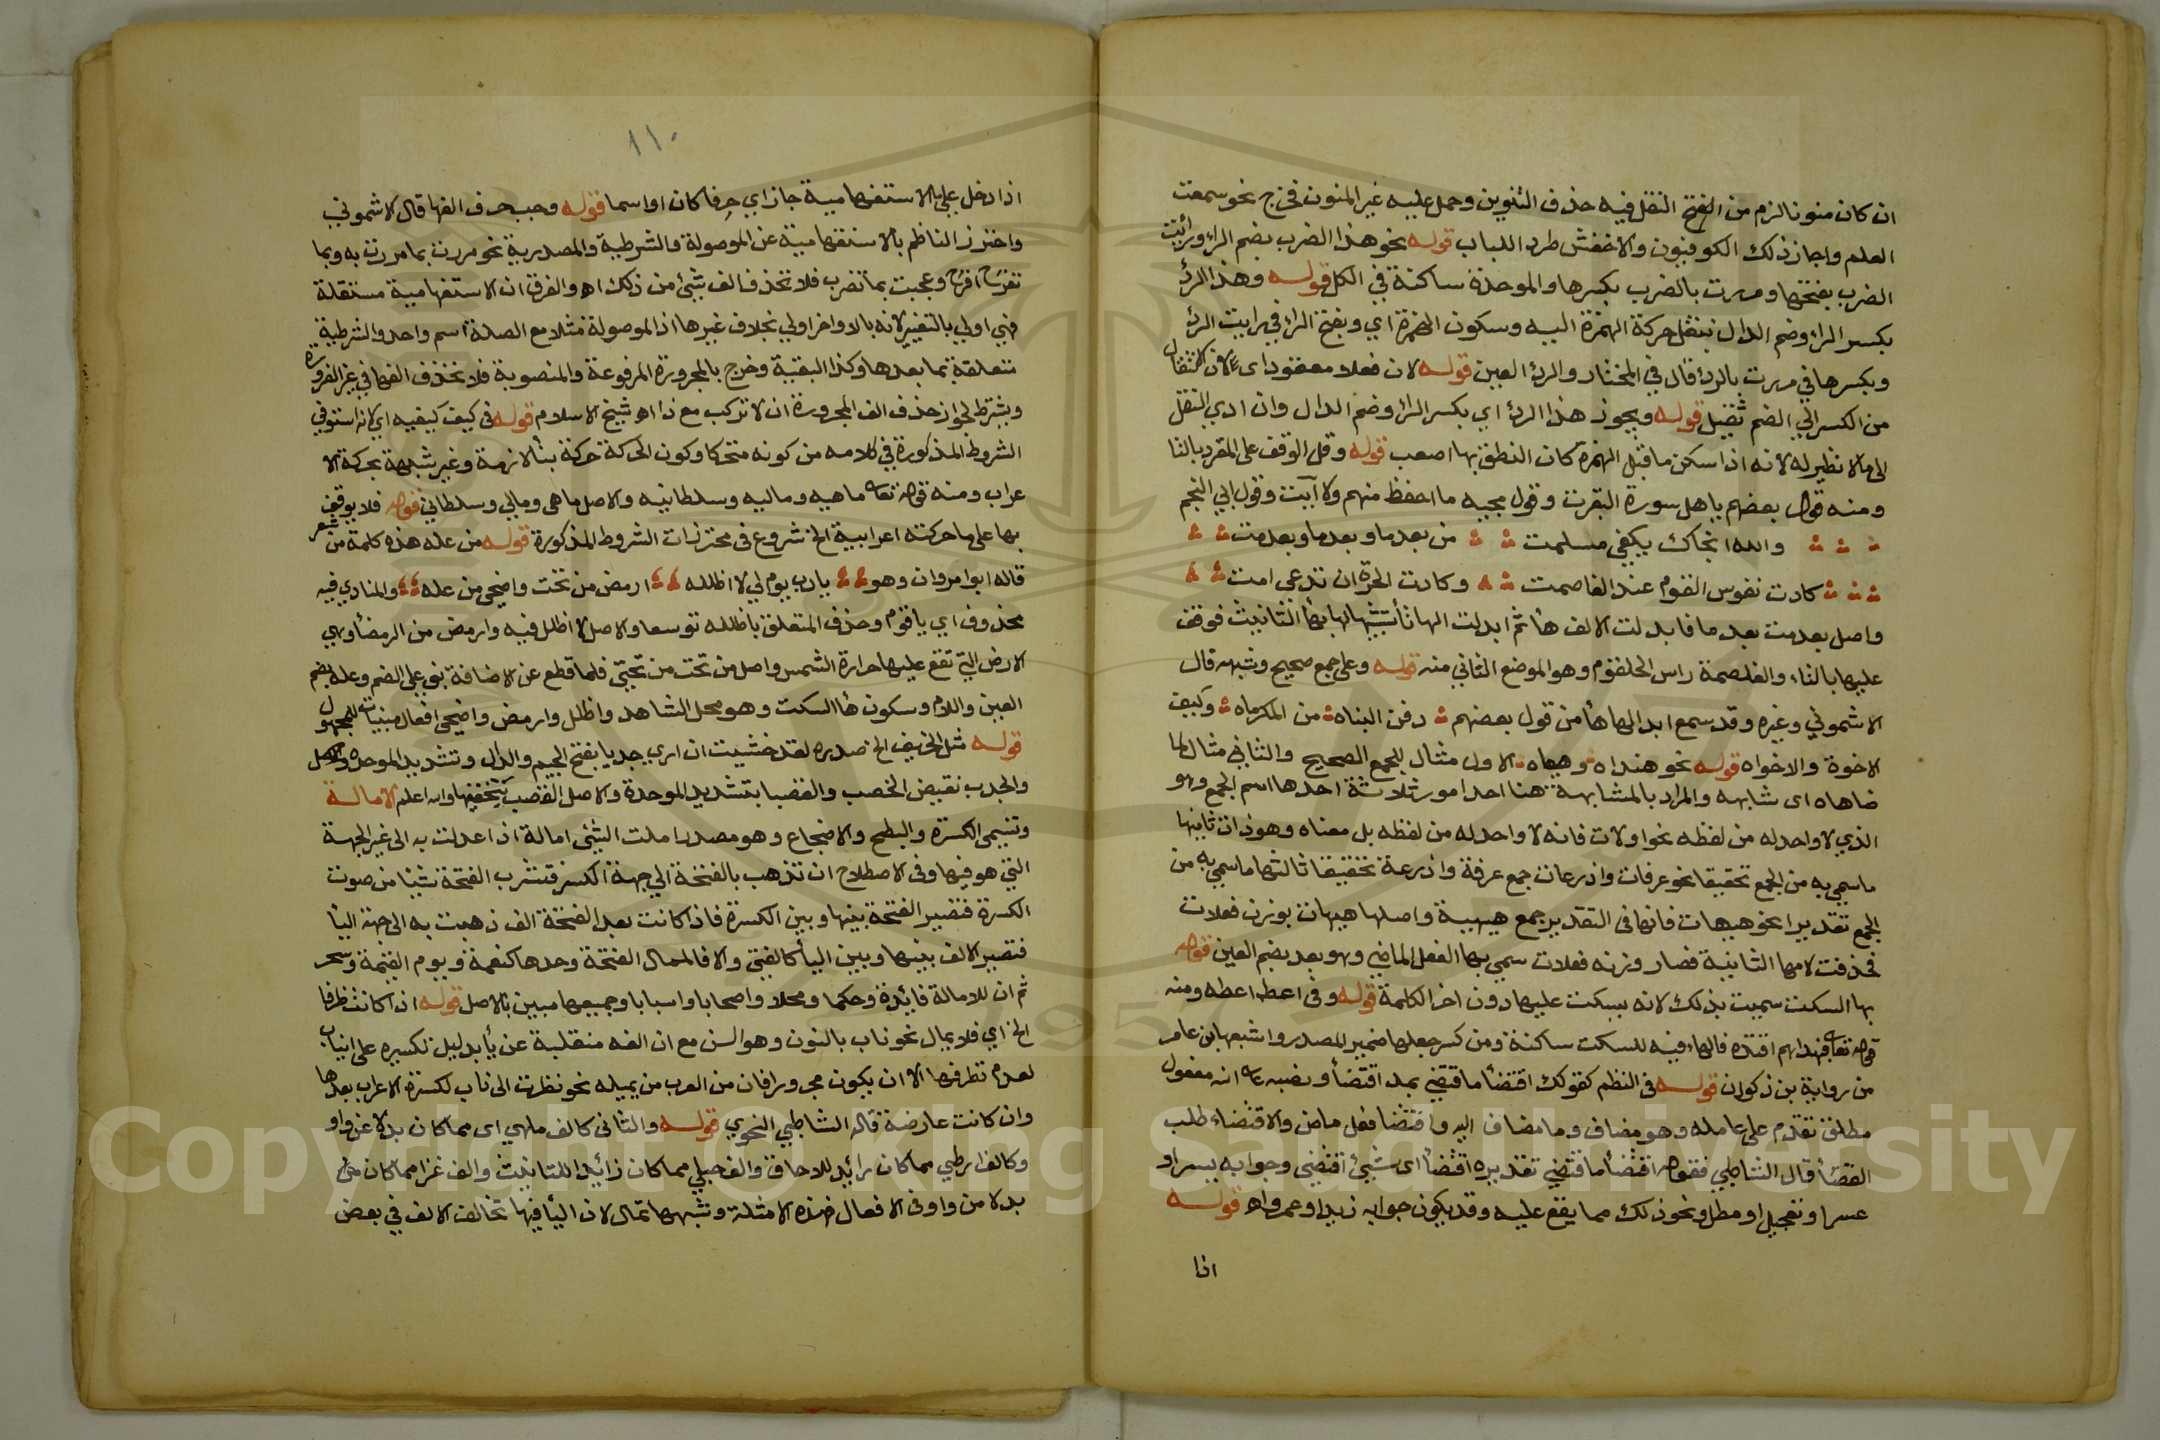 ان كان منونا لزم من الفتح النقل فيه حذف التنوين وحمل عليه غير المنون فخرج نحو سمعت
العلم واجاز ذلك الكوفيون والاخفش طرد اللباب قوله نحو هذا الضرب بضم الراء ورأيت
الضرب بفتحها ومررت بالضرب بكسرها والموحدة ساكنة في الكل قوله وهذا الردُ
بكسر الراء وضم الدال بنقل حركة الهمزة اليه وسكون الهمزة اي وبفتح الراء في رايت الردَ
وبكسرها في مررت بالردء قال في المختار والردء العين قوله لان فعلا مفقود اي لان الانتقال
من الكسر الي الضم ثقيل قوله ويجوز هذا الردء اي بكسر الراء وضم الدال وان ادي النقل
الى مالا نظير له لانه اذا سكن ما قبل الهمزة كان النطق بها اصعب قوله وقل الوقف على المفرد بالتا
ومنه قول بعضهم ياهل سورة البقرت وقول مجيبه ما احفظ منهم ولا آيت وقول ابي النجم
والله انجاك بكفي مسلمت من بعد ما وبعد ما وبعدمت
كادت نفوس القوم عند الغلصمت وكادت الحرة ان تدعي امت
واصل بعدمت بعد ما فابدلت الالف هاء ثم ابدلت الهاء تاء تشبيها لها بهاء التانيث فوقف
عليها بالتاء والغلصمة راس الحلقوم وهو الموضع الثاني منه قوله وعلى جمع صحيح وشبهه قال
الاشموني وغيره وقد سمع ابدالها هاء من قول بعضهم دفن البناه من المكرماه وكيف
الاخوة والاخواه قوله نحو هنداه وهيهاه الاول مثال للجمع الصحيح والثاني مثال لما
ضاهاه اى شابهه والمراد بالمشابهة هنا احد امور ثلاثة احدها اسم الجمع وهو
الذي لا واحد له من لفظه نحو اولات فانه لا واحد له من لفظه بل معناه وهو ذات ثانيها
ماسمي به من الجمع تحقيقا نحو عرفات واذرعات جمع عرفة واذرعة تحقيقا ثالثها ماسمي به من
الجمع تقديرا نحو هيهات فانها في التقدير جمع هيهية واصلها هيهيات بوزن فعلات
فحذفت لامها الثانية فصار وزنه فعلات سمي بها الفعل الماضي وهو بعد بضم العين قوله
بها السكت سميت بذلك لانه يسكت عليها دون اخر الكلمة قوله وفى اعط اعطه ومنه
قوله تعالى فبهداهم اقتده فالهاء فيه للسكت ساكنة ومن كسر جعلها ضمير المصدر واشبعها ابن عامر
من رواية بن ذكوان قوله فى النظم كقولك اقتضاء ما اقتضي بمد اقتضاء ونصبه على انه مفعول
مطلق تقدم على عامله وهو مضاف وما مضاف اليه واقتضا فعل ماض والاقتضاء طلب
القضاء قال الشاطبي فقوله اقتضاء ما اقتضي تقديره اقتضاء اى شيئ اقتضي وجوابه يسرا او
عسرا او تعجيل او مطل ونحو ذلك مما يقع عليه وقد يكون جوابه زيد او عمرو اه قوله
اذا
١١٠
اذا دخل على ما الاستفهامية جاز اي حرفا كان او اسما قوله وجب حذف الفها قال الاشموني
واحترز الناظم بالاستفهامية عن الموصولة والشرطية والمصدرية نحو مررت بما مررت به وبما
تفرح افرح وعجبت بما تضرب فلا تحذف الف شيئ من ذلك اه والفرق ان الاستفهامية مستقلة
فهي اولي بالتغيير لانه بالاواخر اولي بخلاف غيرها اذ الموصولة مثلا مع الصلة اسم واحد والشرطية
متعلقة بما بعدها وكذا البقية وخرج بالمجرورة المرفوعة والمنصوبة فلا تحذف الفها في غير الضرورة
ويشترط لجواز حذف الف المجرورة ان لا تركب مع ذا اه شيخ الاسلام قوله فى كيف كيفيه اي لانه استوفي
الشروط المذكورة في كلامه من كونه متحركا وكون الحركة حركة بناء لازمة وغير شبيهة بحركة الا
عراب ومنه قوله تعالى ماهيه وماليه وسلطانيه والاصل ماهى ومالي وسلطاني قوله فلا يوقف
بها على ما حركته اعرابية الخ شروع فى محترزات الشروط المذكورة قوله من عله هذه كلمة من شعر
قاله ابو امروان وهو يارب يوم لي لا اظلله ارمض من تحت واضحى من عله والمنادي فيه
محذوف اي ياقوم وحذف المتعلق باظلله توسعا والاصل لا اظلل فيه وارمض من الرمضاء وهي
الارض التي تقع عليها حرارة الشمس واصل من تحت من تحتي فلما قطع عن الاضافة بني على الضم وعله بضم
العين واللام وسكون هاء السكت وهو محل الشاهد واظلل وارمض واضحى افعال مبنيات للمجهول
قوله مثل الخريف الخ صدره لقد خشيت ان اري جدبا بفتح الجيم والدال وتشديد الموحدة والاصل
والجدب نقيض الخصب والقصبا بتشديد الموحدة والاصل القصب بتخفيفها والله اعلم الامالة
وتسمى الكسرة والبطح والاضجاع وهو مصدر املت الشئ امالة اذا عدلت به الى غير الجهة
التي هو فيها وفى الاصطلاح ان تذهب بالفتحة الي جهة الكسر فتشرب الفتحة شيئا من صوت
الكسرة فتصير الفتحة بينها وبين الكسرة فاذا كانت بعد الفتحة الف ذهبت به الى جهة الياء
فتصير الالف بينها وبين الياء كالفتى والا فالممال الفتحة وحدها كنعمة ويوم القيمة وسحر
ثم ان للامالة فايدة وحكما ومحلا واصحابا واسبابا وجميعها مبين بالاصل قوله اذا كانت ظرفا
الخ اي فلا يمال نحو ناب بالنون وهو السن مع ان الفه منقلبة عن ياء بدليل تكسيره على انياب
لعدم تطرفها الا ان يكون مجرورا فان من العرب من يميله نحو نظرت الى ناب لكسرة الاعراب بعدها
وان كانت عارضة قاله الشاطبي النحوي قوله والثانى كالف ملهي اى مما كان بدلا عن واو
وكالف ارطي مما كان زائد للالحاق والف حبلي مما كان زائدا للتانيث والف غزا مما كان منه
بدلا من واو فى الافعال فهذه الامثلة وشبهها تمال لان الياء فيها تخالف الالف في بعض
Copyright © King Saud University
1957